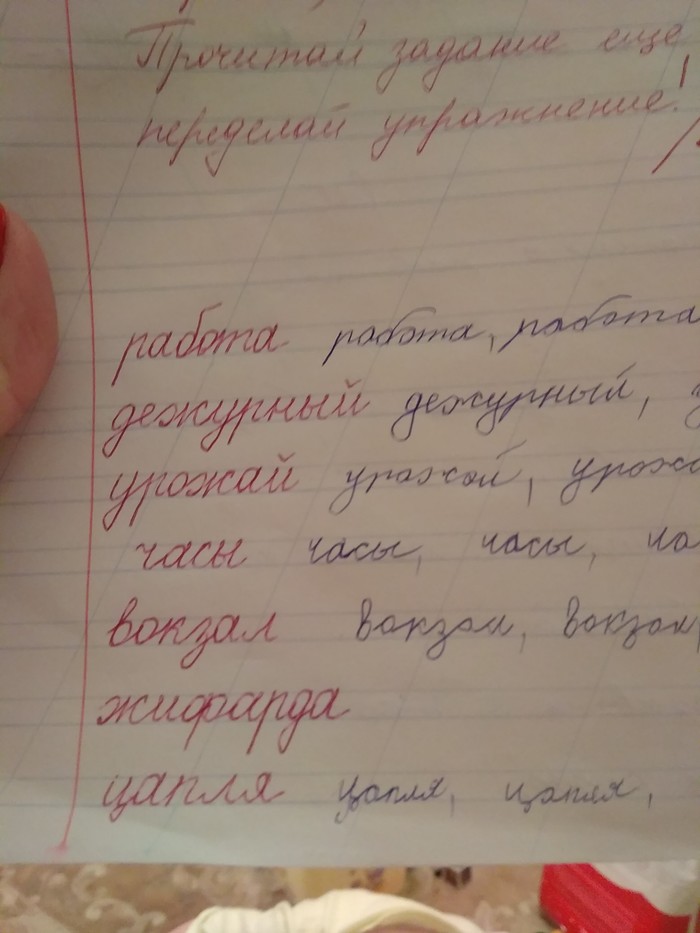 Прочитай задание еще
переделай упражнение!
работа работа, работа
дежурный дежурный,
урожай урожай, урожа
часы часы, часы, ча
вокзал вокзал, вокзал,
жифарда
цапля цапля, цапля,